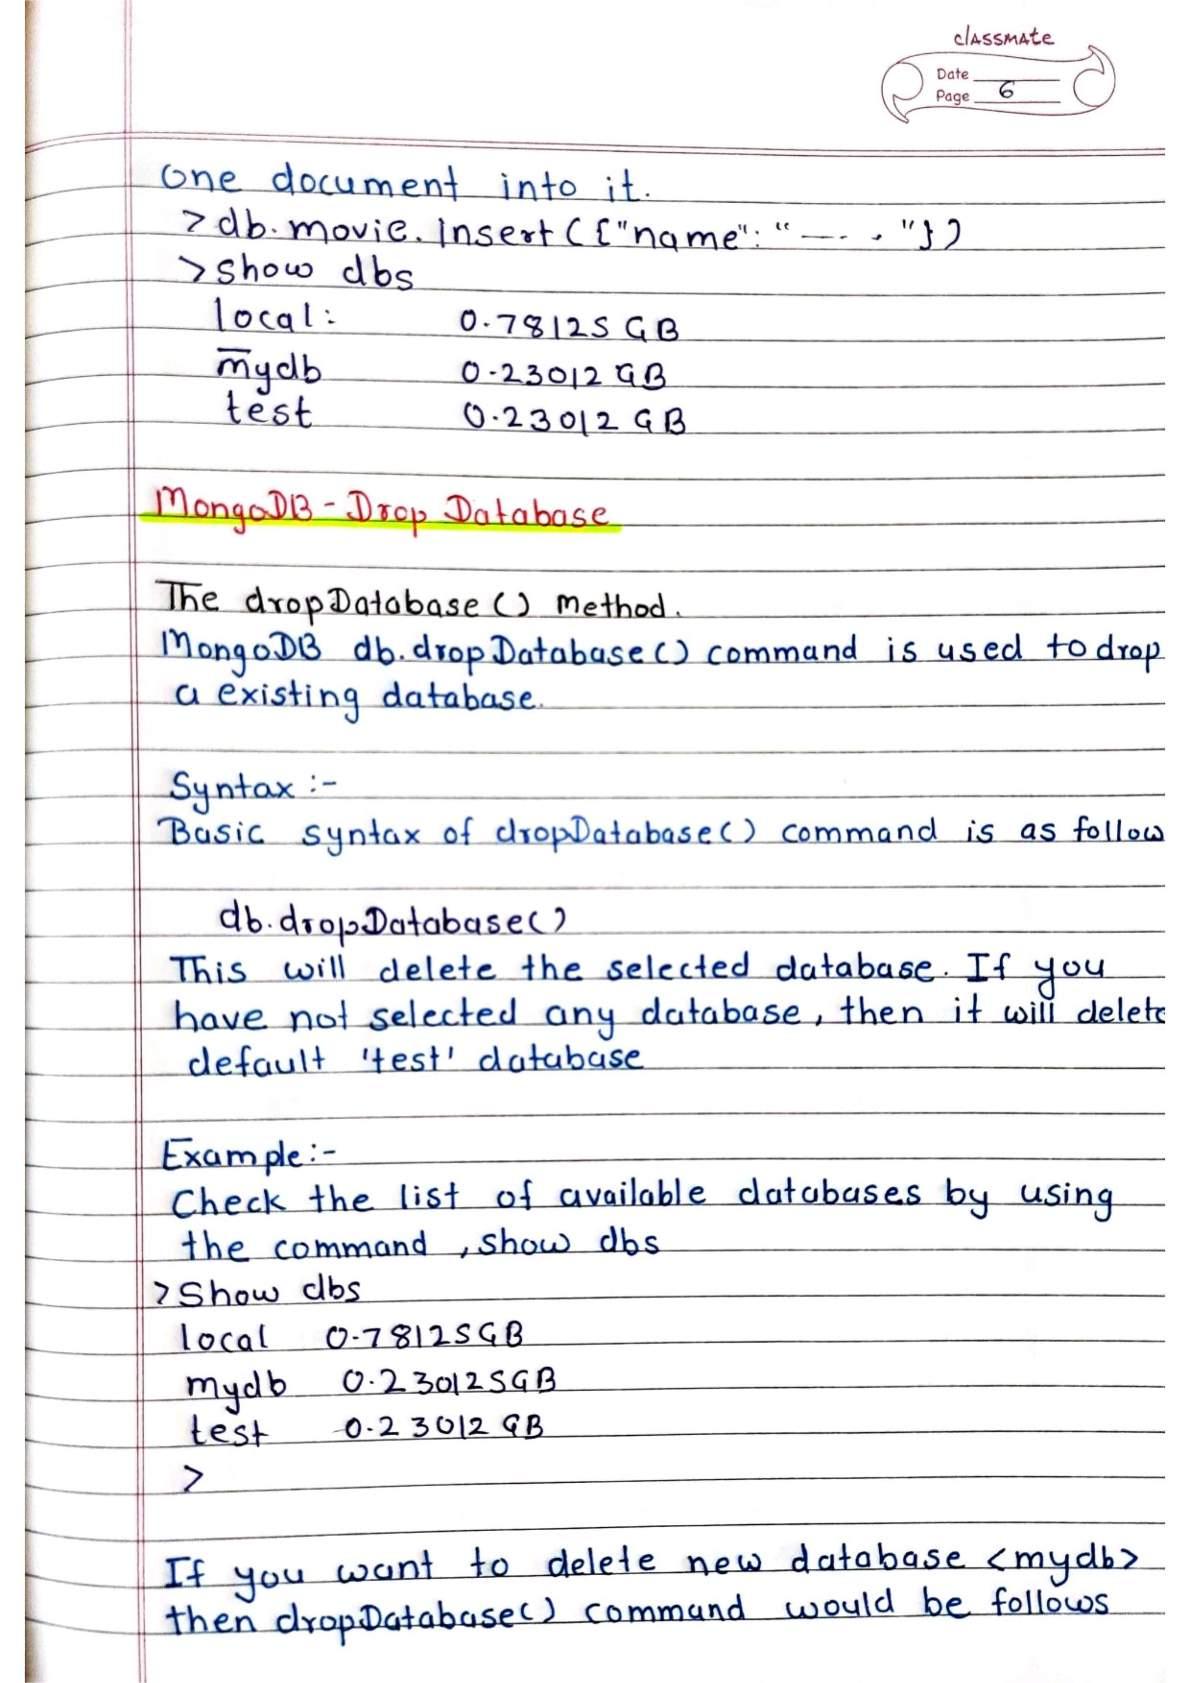 classmate
Date
Page 6
one document into it.
>db.movie.insert({"name": "—-- . "})
>show dbs
local: 0.78125 GB
mydb 0.23012 GB
test 0.23012 GB
MongoDB - Drop Database
The dropDatabase() Method.
MongoDB db.dropDatabase() command is used to drop
a existing database.
Syntax :-
Basic syntax of dropDatabase() command is as follow
db.dropDatabase()
This will delete the selected database. If you
have not selected any database, then it will delete
default 'test' database
Example:-
Check the list of available databases by using
the command , show dbs
>Show dbs
local 0.78125GB
mydb 0.230125GB
test 0.23012 GB
>
If you want to delete new database <mydb>
then dropDatabase() command would be follows